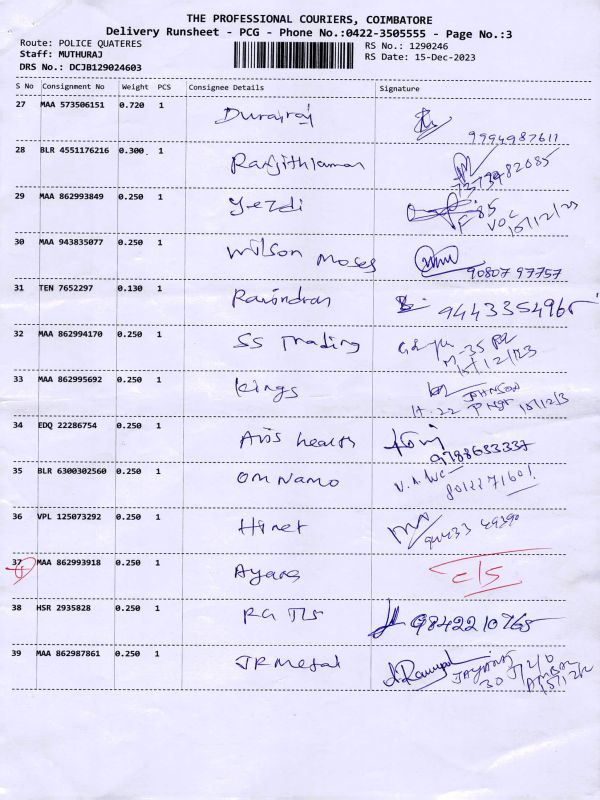 THE PROFESSIONAL COURIERS, COIMBATORE
Delivery Runsheet - PCG - Phone No.:0422-3505555 - Page No.:3
Route: POLICE QUATERES RS No.: 1290246
Staff: MUTHURAJ RS Date: 15-Dec-2023
DRS No.: DCJB129024603
S No Consignment No Weight PCS Consignee Details Signature
27 MAA 573506151 0.720 1 Durairaj
9994987611
28 BLR 4551176216 0.300 1 Ranjithkumar
29 MAA 862993849 0.250 1 Yezdi
F 85
VOC
15/12/23
30 MAA 943835077 0.250 1 Wilson Moses
90807 97757
31 TEN 7652297 0.130 1 Ravindran 9443354965
32 MAA 862994170 0.250 1 SS Trading
M-35
15/12/23
33 MAA 862995692 0.250 1 Kings
JOHNSON
H-22 15/12/3
34 EDQ 22286754 0.250 1 Avis health
9788653337
35 BLR 6300302560 0.250 1 OM NAMO
8012271601
36 VPL 125073292 0.250 1
94433 49390
37 MAA 862993918 0.250 1 c/s
38 HSR 2935828 0.250 1 9842210765
39 MAA 862987861 0.250 1 JR Metal
30